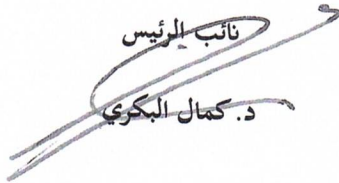 نائب الرئيس
د. كمال البكري